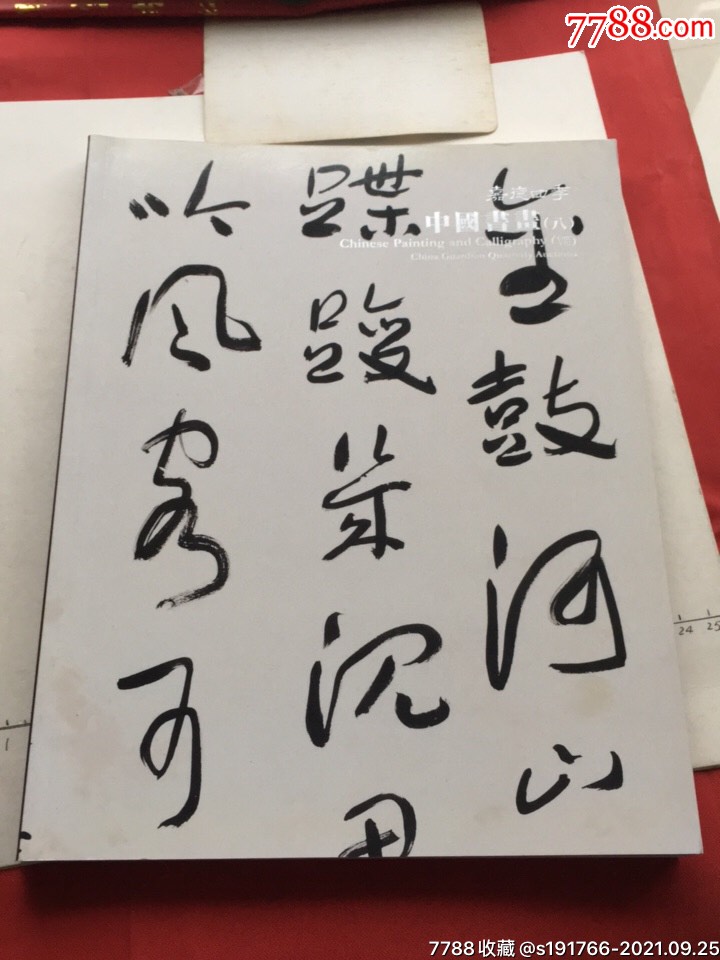 7788.com
嘉德四季
中國書畫(八)
Chinese Painting and Calligraphy
China Guardian Quarterly Auctions
鼓河山
蹀躞沉
吟风可
24 25
1
7788收藏@s191766-2021.09.25